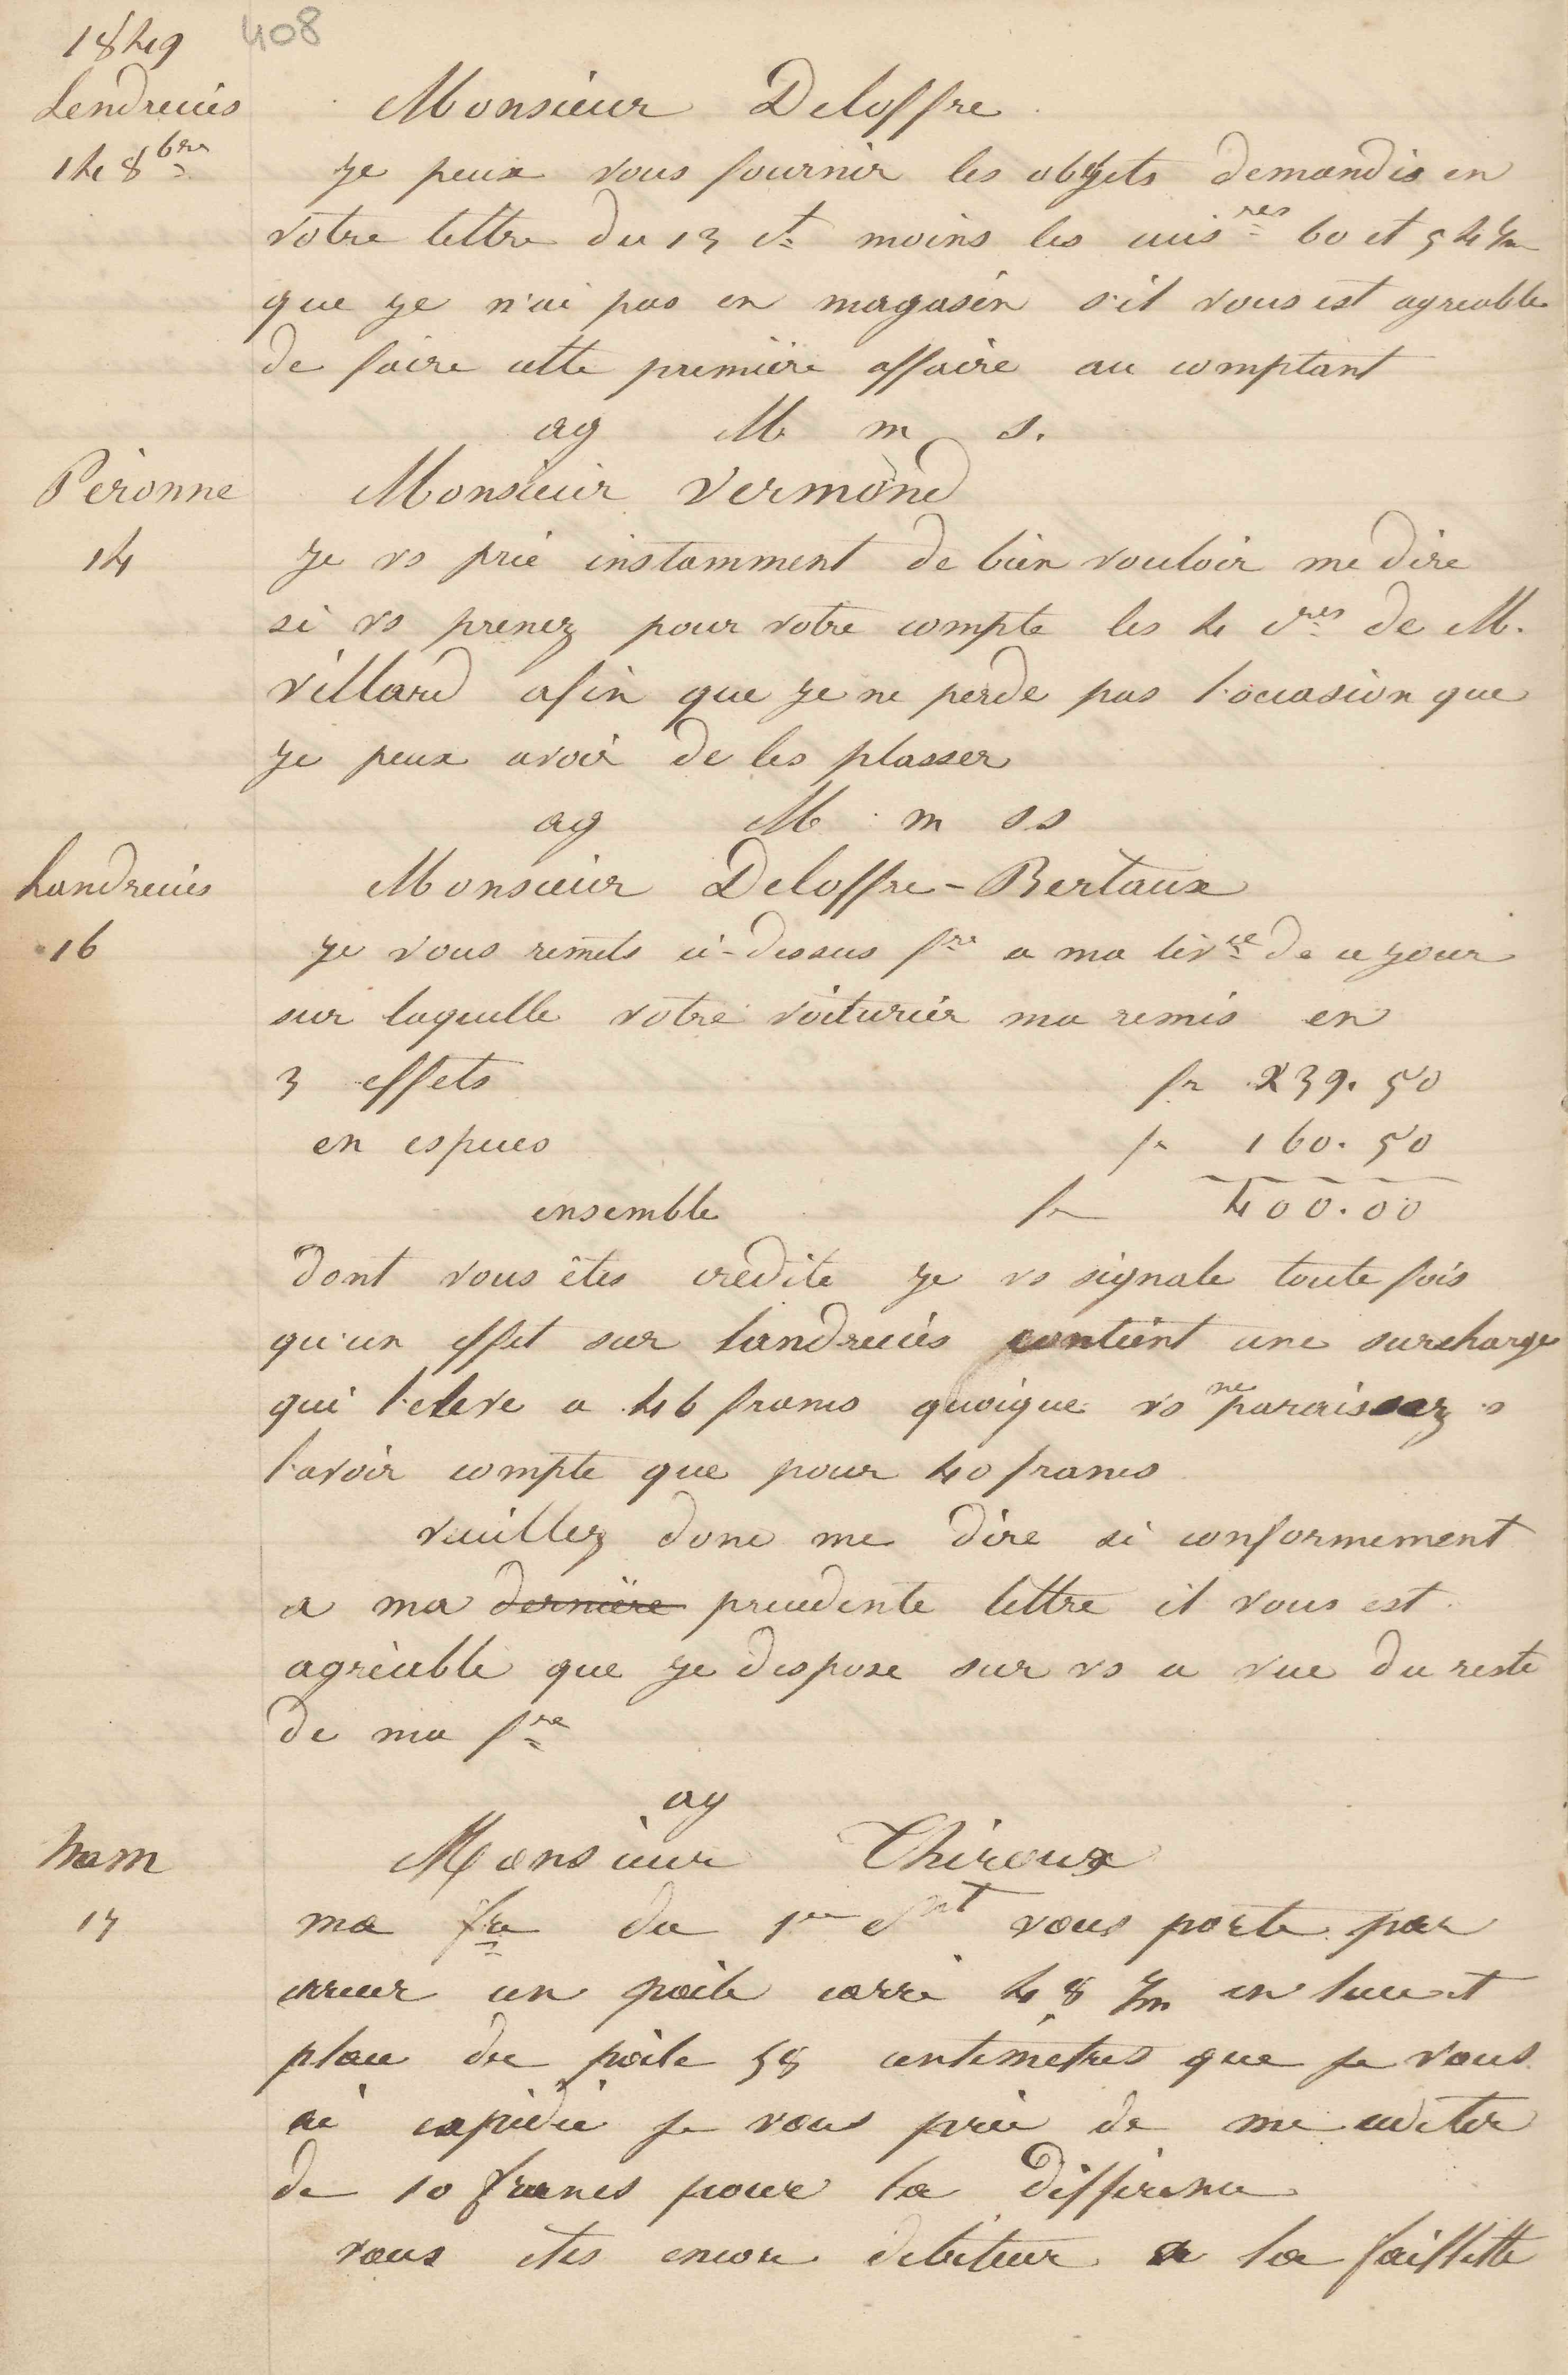 1849 408
Lendrecies Monsieur Deloffre
14 8bre je peux vous fournir les objets demandés en
votre lettre du 13 ct moins les cuisres 60 et 54 c/m
que je n'ai pas en magasin s'il vous est agreable
de faire cette première affaire au comptant
ag M m s.
Péronne Monsieur Vermond
14 Je vs prie instamment de bien vouloir me dire
si vs prenez pour votre compte les 4 cres de M.
villard afin que je ne perde pas l'occasion que
je peux avoir de les plasser
ag M m ss
Landrecies Monsieur Deloffre-Bertaux
16 je vous remets ci-dessus fre a ma livce de ce jour
sur laquelle votre voiturier ma remis en
3 effets fr 239. 50
en especes fr 160. 50
ensemble fr 400.00
dont vous êtes crédité je vs signale toute fois
qu'un effet sur Landrecies contient une surcharge
qui l'eleve a 46 francs quoique vs ne paraissez
l'avoir compte que pour 40 francs
veuillez donc me dire si conformement
a ma dernière precedente lettre il vous est
agréable que je dispose sur vs a vue du reste
de ma fre
ag
ham Monsieur Thiroux
17 ma fre du 1er cnt vous porte par
erreur un poile carré 48 c/m en lieu et
place du poile 58 centimetres que je vous
ai expidié je vous prie de me crediter
de 10 francs pour la difference
vous êtes encore debiteur a la faillette